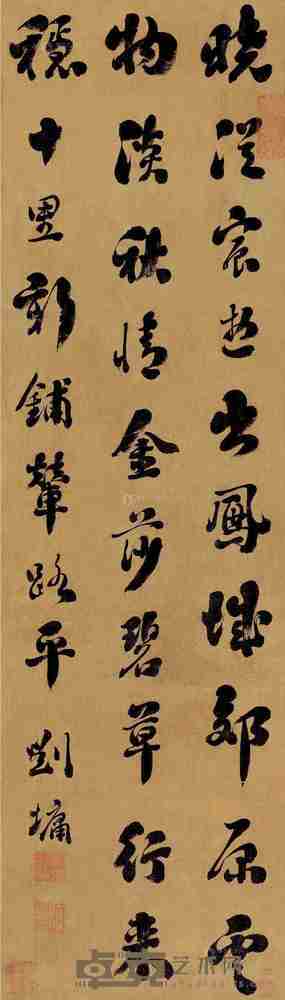 曉從宸遊出鳳城郊原雲
物淡秋情金莎碧草行來
穩十里新鋪輦路平 劉墉
卓克艺术网